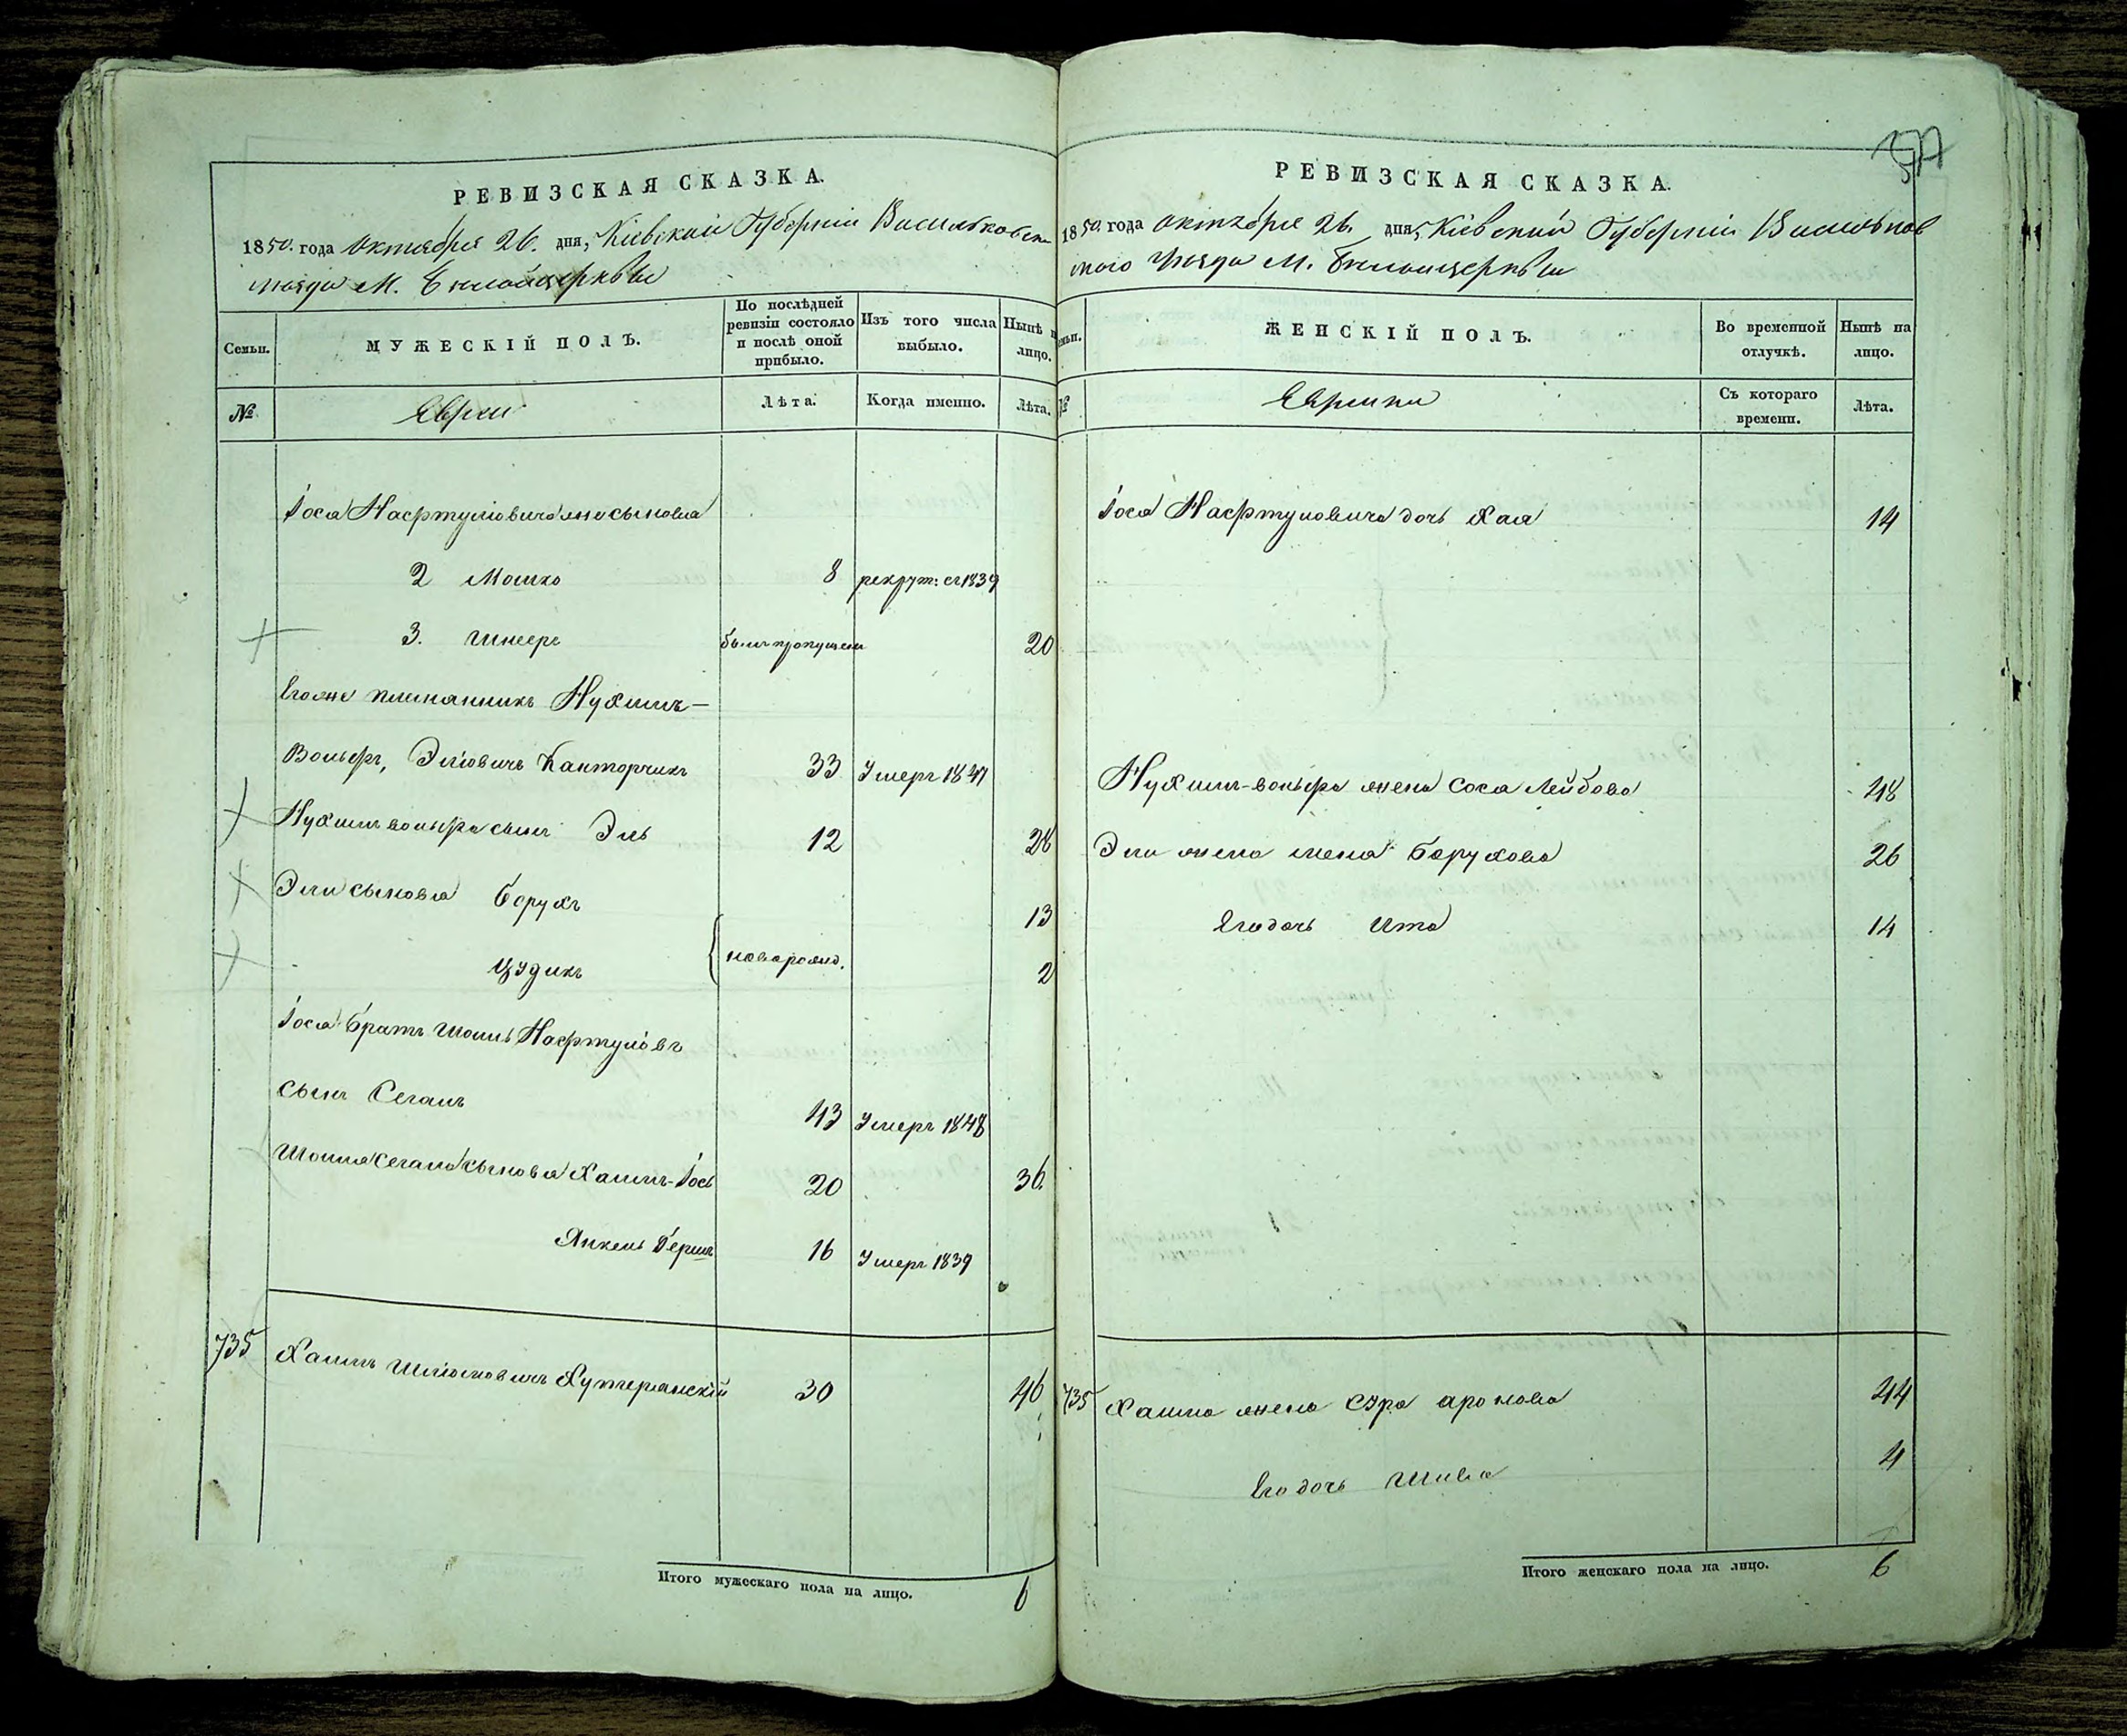 377
РЕВИЗСКАЯ СКАЗКА.
1850. года Октября 26. дня, Кіевской Губерніи Васильковска
уезда М. Белойцеркви
Семьи.
МУЖЕСКІЙ ПОЛЪ.
По послѣдней ревизіи состояло и послѣ оной прибыло.
Изъ того числа выбыло.
Нынѣ н лицо.
№
Евреи
Лѣта.
Когда именно.
Лѣта.
Іося Нафтуловича же сыновья
2 Мошко 8 рекрут: съ 1839
3. Шнеер 20
Егоже племянникъ Нухимъ-
Вольфъ, Эліовичъ Канторчикъ 33 Умеръ 1847
Нухимъ вольфа сынъ Эль 12 28
Эли сыновья Борухъ 13
Цудикъ новорожд. 2
Іося братъ Шоилъ Нафтуловъ
сынъ Сегалъ 43 Умеръ 1848
Шоиля Сегала сыновья Хаимъ-Іось 20 36.
Янкель Герш 16 Умеръ 1839
735 Хаимъ Шліомовичъ Хутерянскій 30 46
Итого мужескаго пола на лицо. 6
РЕВИЗСКАЯ СКАЗКА.
1850. года Октября 26. дня, Кіевской Губерніи Васильков
скаго Уезда М. Белойцеркви
мьи.
ЖЕНСКІЙ ПОЛЪ.
Во временной отлучкѣ.
Нынѣ на лицо.
№
Еврейки
Съ котораго времени.
Лѣта.
Іося Нафтуловича дочь Хая 14
Нухим-вольфа жена Сося Лейбова 48
Эли жена Борухова 26
Его дочь Ита 14
735 Хаима жена Сура Аронова 44
Его дочь 4
Итого женскаго пола на лицо. 6